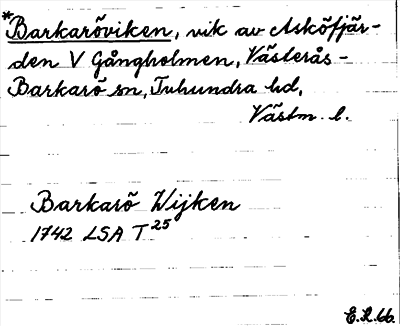 *Barkaröviken, vik av Asköfjär-
den V Gångholmen, Västerås-
Barkarö sn, Tuhundra hd,
Västm. l.
Barkarö Wijken
1742 LSA T 25
E.R. 66.